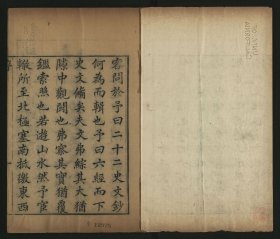 客問於予曰二十二史文鈔
何為而輯也予曰六經而下
史文備矣失文弗綜其大猶
隙中觀鬪也弗察其實猶覆
鑑索照也若遊山水然予宦
轍所至北極塞南抵徼東西